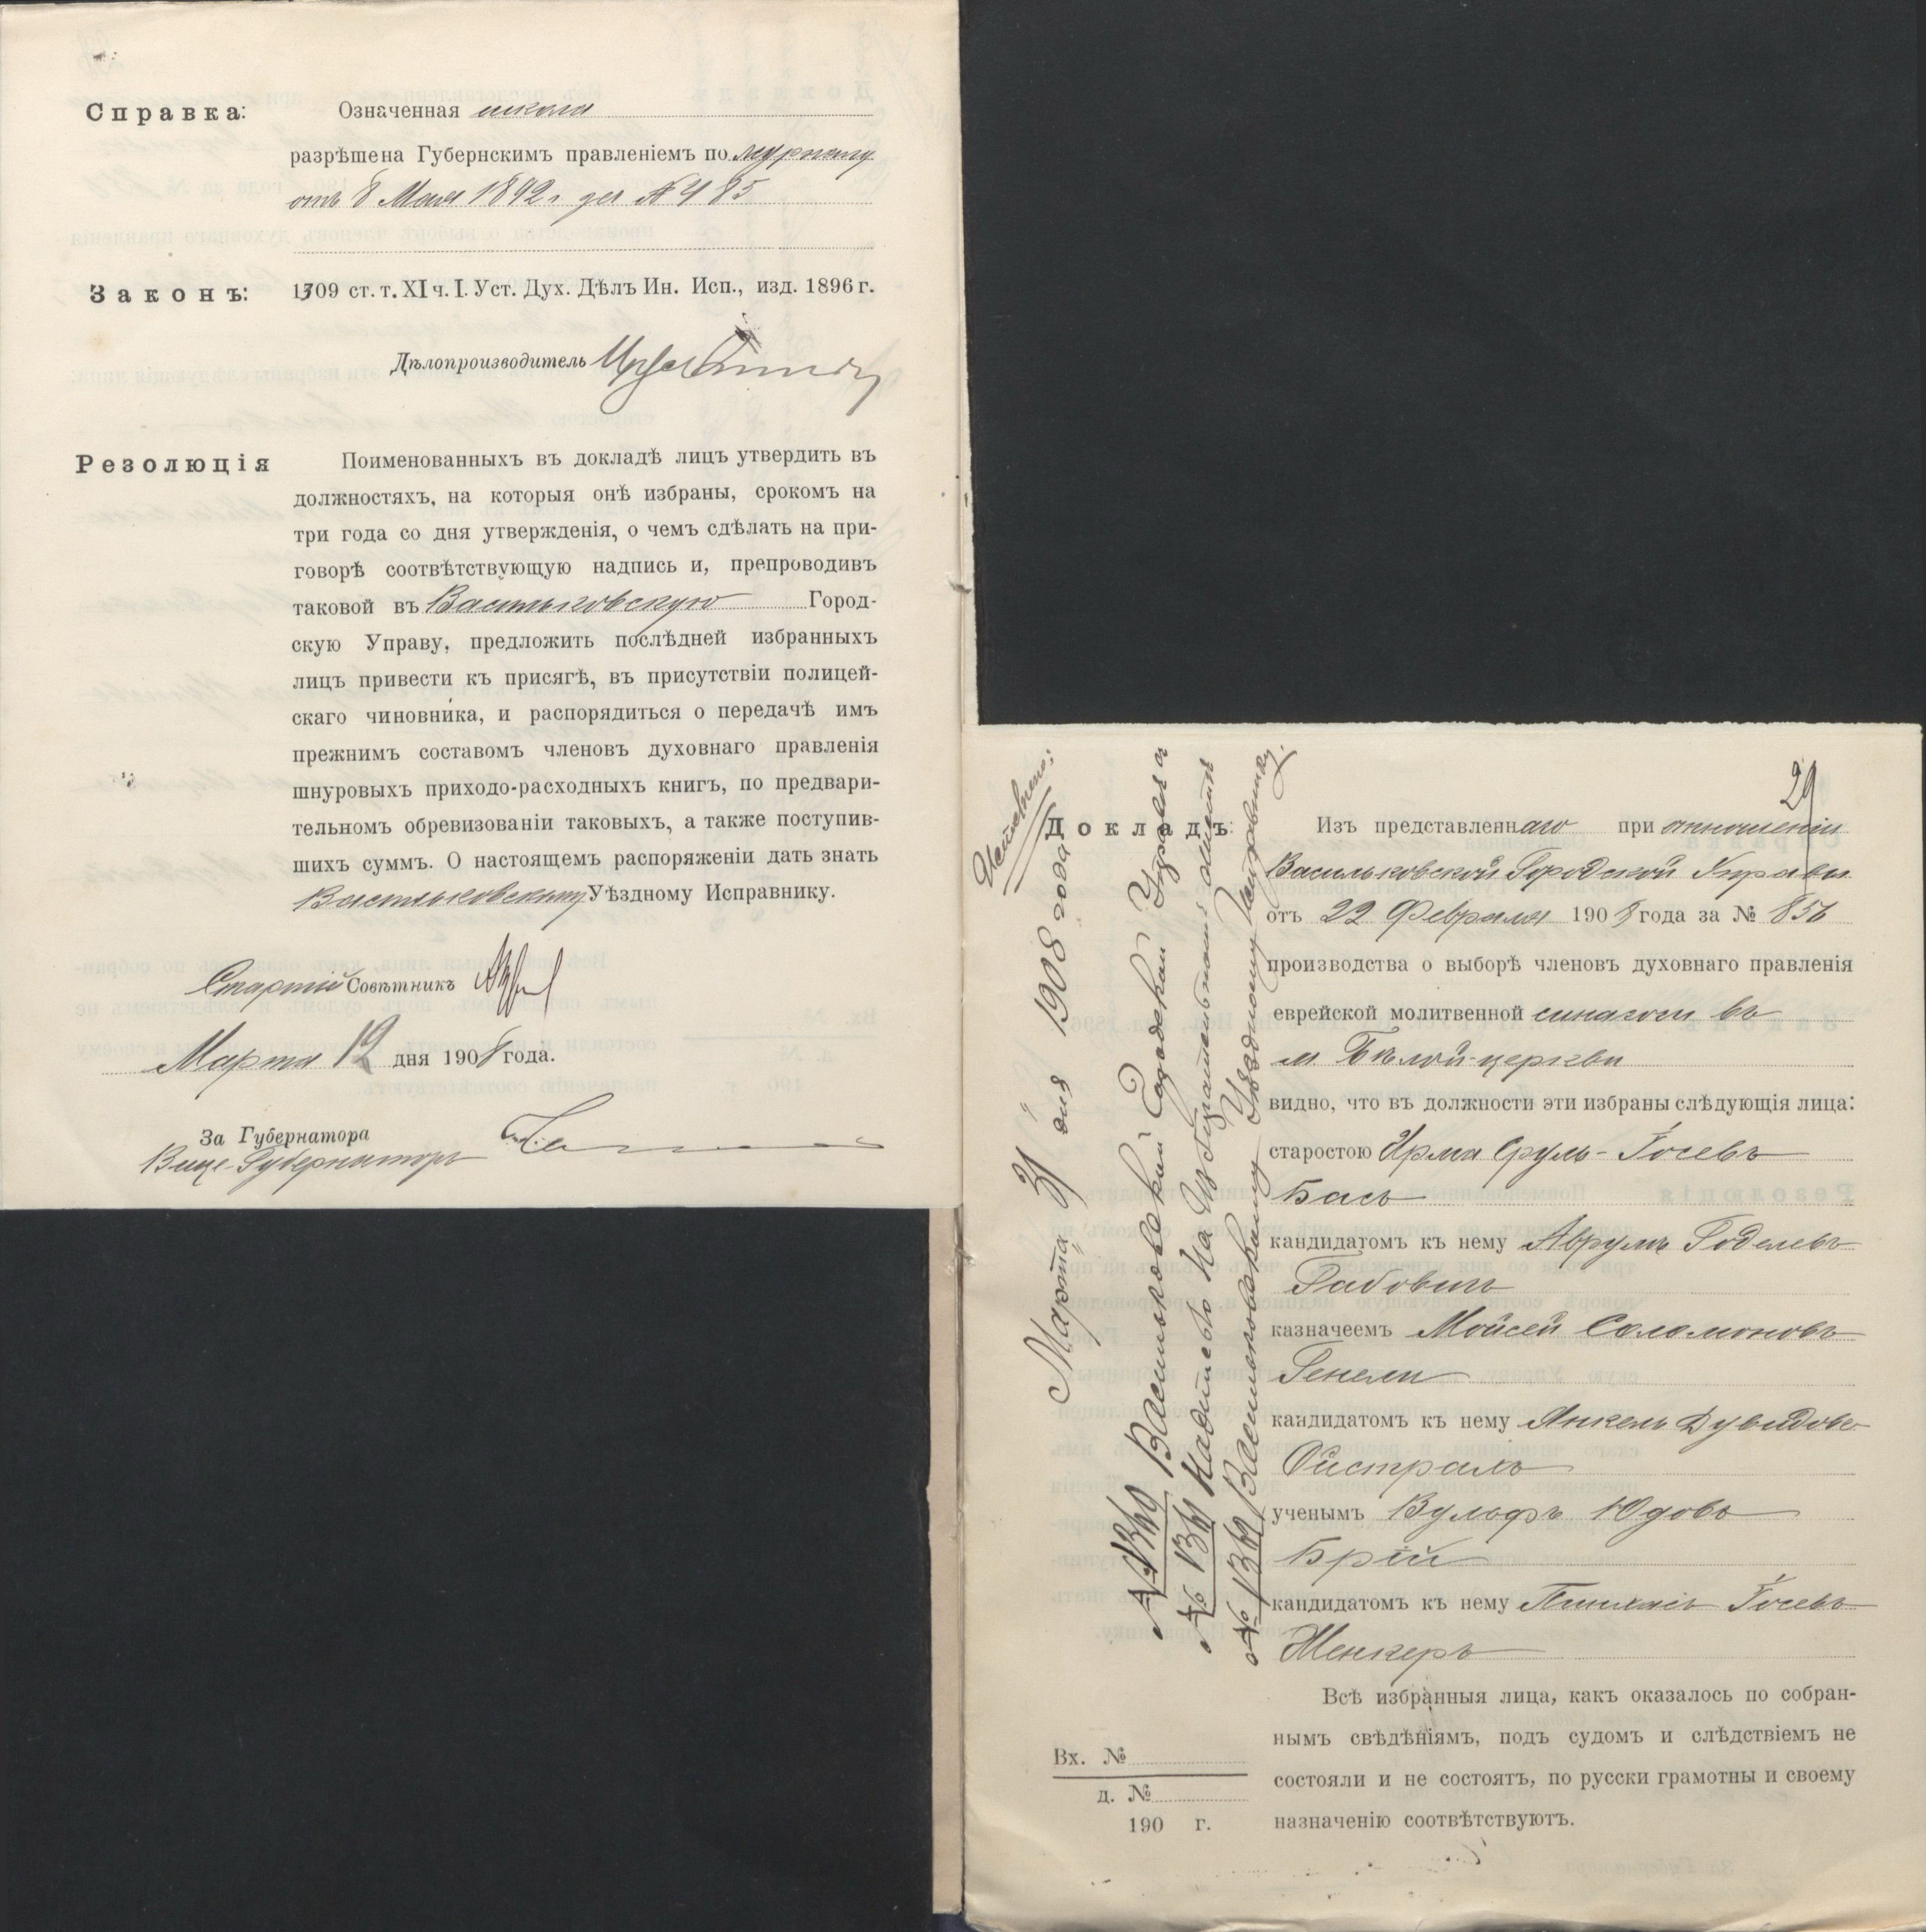 Справка:
Означенная школа
разрѣшена Губернскимъ правленіемъ по журналу
отъ 8 Мая 1892 г. за № 485
Законъ:
1309 ст. т. XI ч. I. Уст. Дух. Дѣлъ Ин. Исп., изд. 1896 г.
Дѣлопроизводитель
Резолюція
Поименованныхъ въ докладѣ лицъ утвердить въ
должностяхъ, на которыя онѣ избраны, срокомъ на
три года со дня утвержденія, о чемъ сдѣлать на при-
говорѣ соотвѣтствующую надпись и, препроводивъ
таковой въ Васильковскую Город-
скую Управу, предложить послѣдней избранныхъ
лицъ привести къ присягѣ, въ присутствіи полицей-
скаго чиновника, и распорядиться о передачѣ имъ
прежнимъ составомъ членовъ духовнаго правленія
шнуровыхъ приходо-расходныхъ книгъ, по предвари-
тельномъ обревизованіи таковыхъ, а также поступив-
шихъ суммъ. О настоящемъ распоряженіи дать знать
Васильковскому Уѣздному Исправнику.
Старшій Совѣтникъ
Марта 12 дня 1908 года.
За Губернатора
Вице-Губернаторъ
29
Исполнено:
Марта 31 дня 1908 года
№ 1360 Васильковской Городской Управѣ
№ 1361
№ 1362 Васильковскому Уѣздному Исправнику.
Докладъ:
Изъ представленнаго при отношеніи
Васильковской Городской Управы
отъ 22 Февраля 1908 года за № 856
производства о выборѣ членовъ духовнаго правленія
еврейской молитвенной синагоги въ
м. Бѣлой-церкви
видно, что въ должности эти избраны слѣдующія лица:
старостою Ирма Сруль-Іосевъ
Басъ
кандидатомъ къ нему Аврумъ Годелевъ
Рабовит
казначеемъ Мойсей Соломоновъ
Генели
кандидатомъ къ нему Янкель Дувидовъ
Ойстралъ
ученымъ Вульфъ Юдовъ
Брій
кандидатомъ къ нему Пинхасъ Іосевъ
Женкеръ
Всѣ избранныя лица, какъ оказалось по собран-
нымъ свѣдѣніямъ, подъ судомъ и слѣдствіемъ не
состояли и не состоятъ, по русски грамотны и своему
назначенію соотвѣтствуютъ.
Вх. №
д. №
190 г.